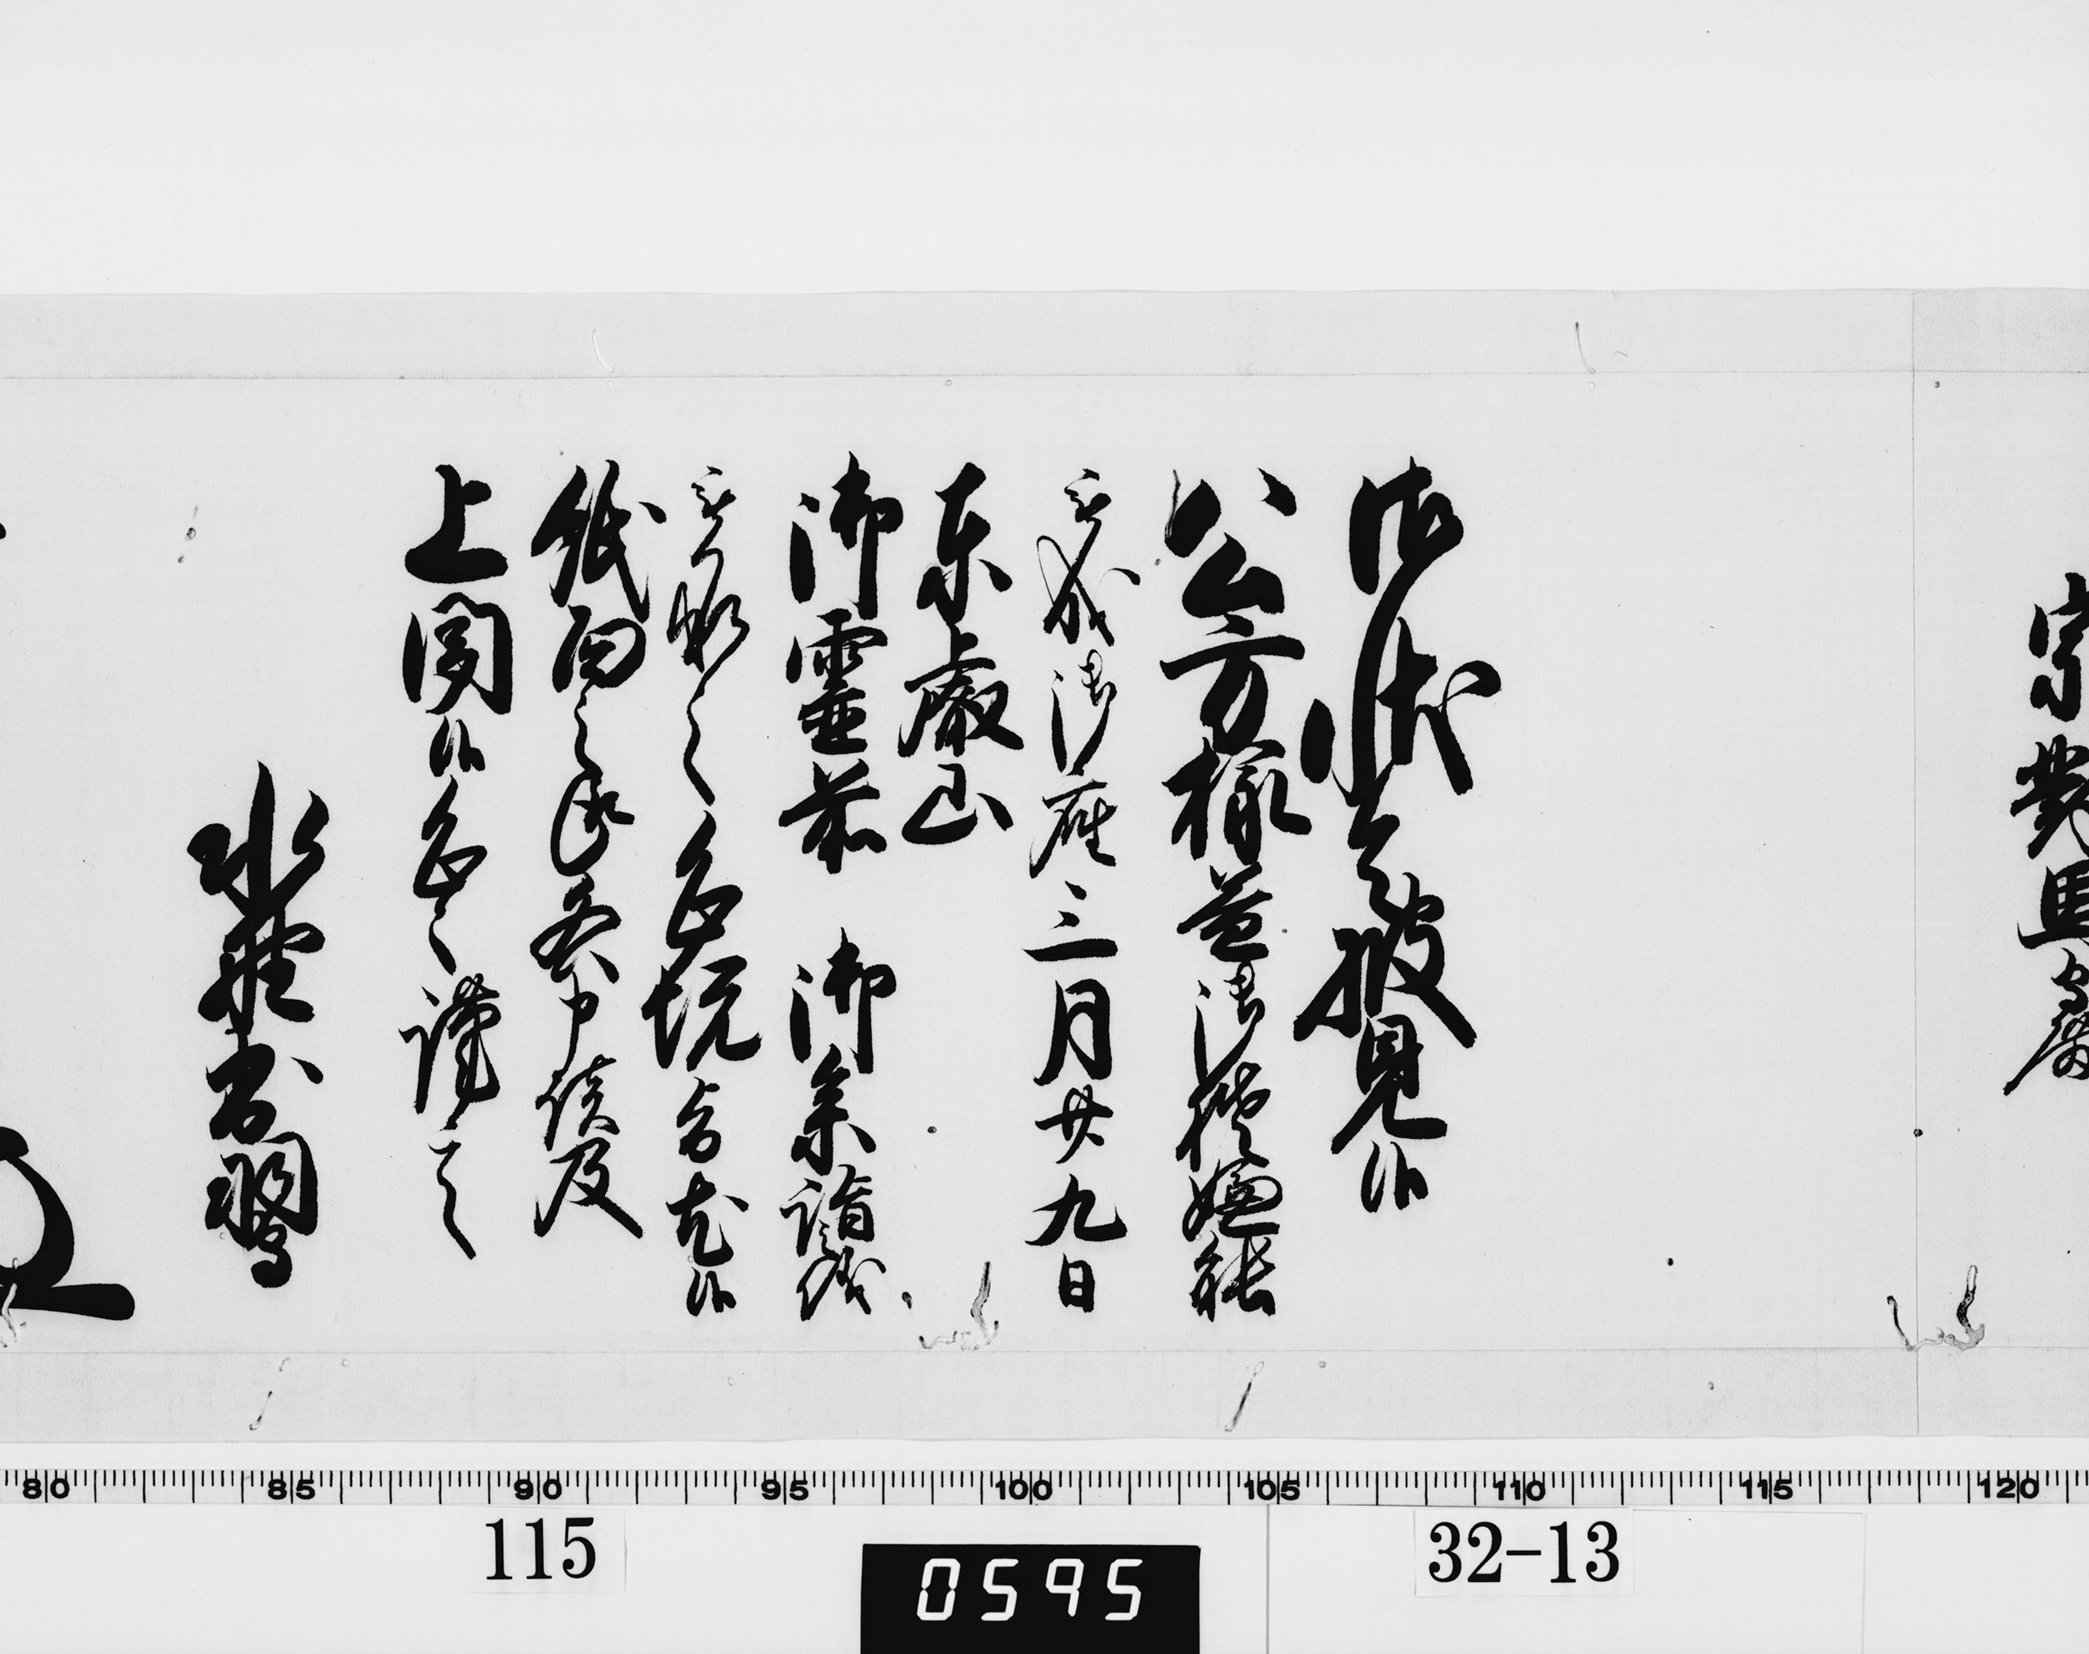 宗對馬守殿
御状令披見候
公方様益御機嫌能
被成御座三月廿九日
東叡山
御霊前　御参詣儀
被承之恐悦旨尤候
紙面之趣各申談及
上聞候恐々謹言
水野出羽守
80 85 90 95 100 105 110 115 120
115
0595
32-13